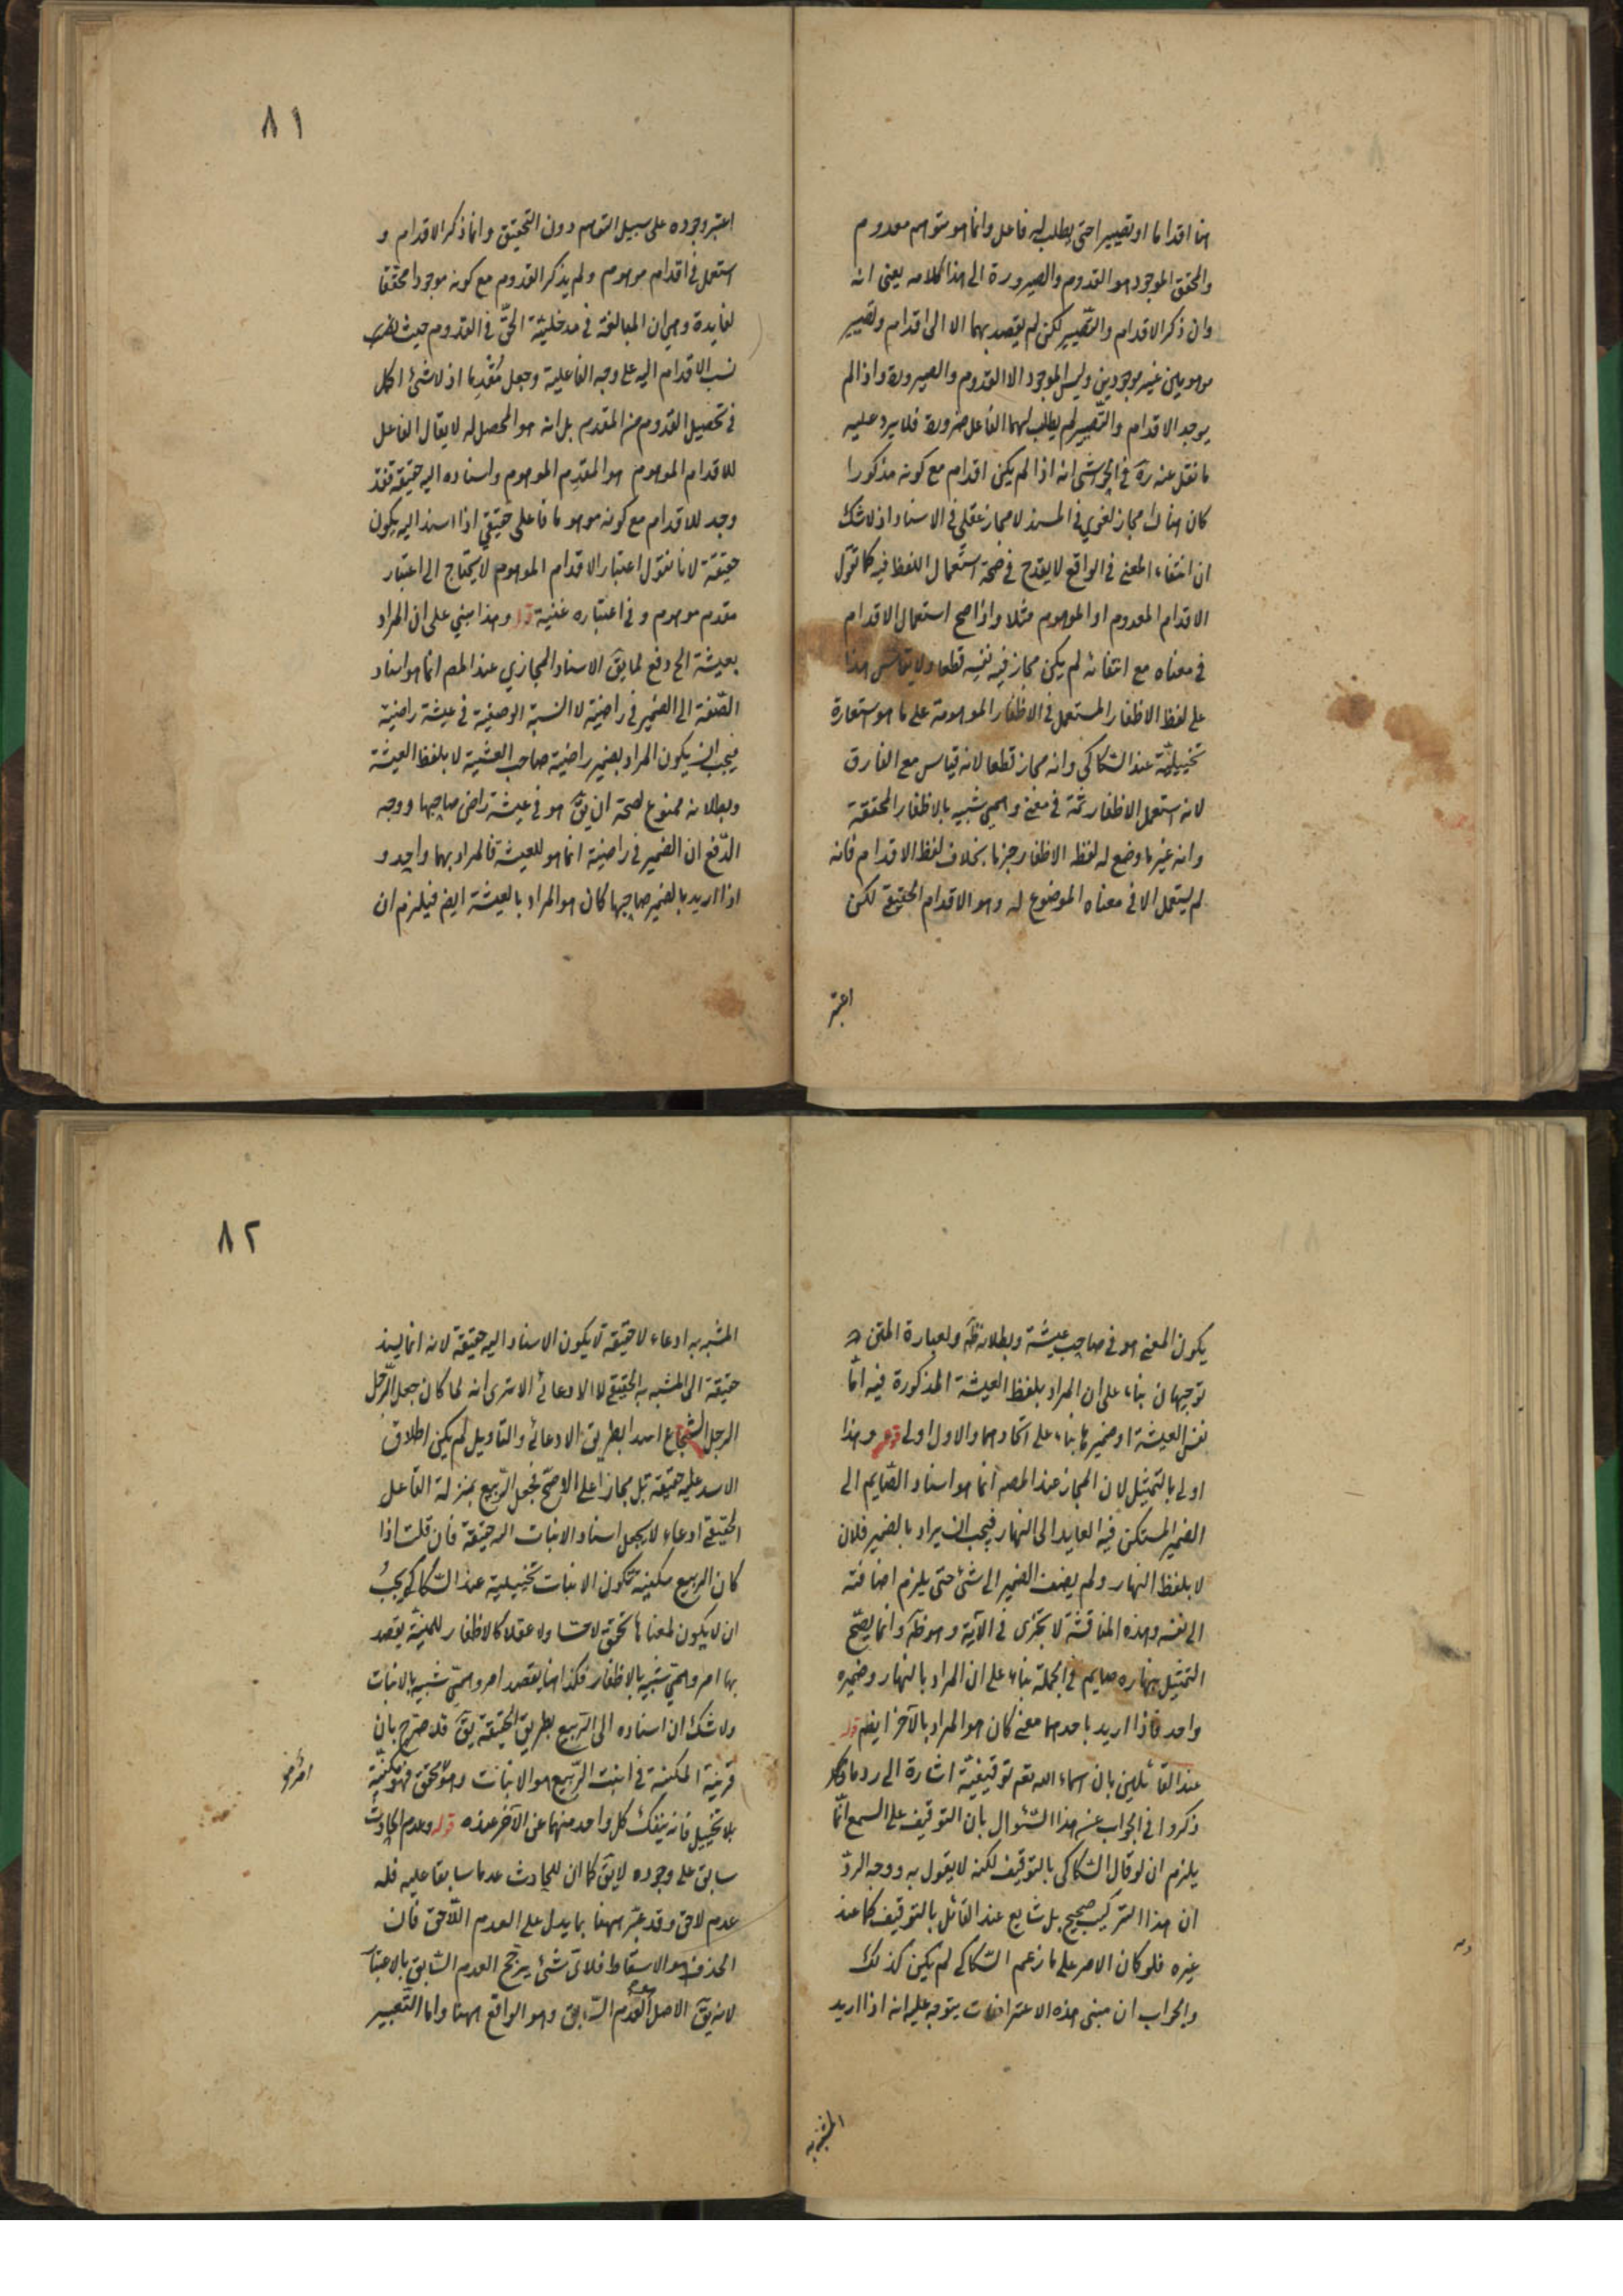 هنا اقداما او تصييرا حتى يطلب له فاعل وانما هو متوهم معدوم
والمحقق الموجود هو القدوم والصيرورة الى هذا كلامه يعنى انه
وان ذكر الاقدام والتصيير لكن لم يقصد بهما الا الى اقدام وتصيير
موهومين غير موجودين وليس الموجود الا القدوم والصيرورة واذا لم
يوجد الاقدام والتصيير لم يطلب لهما الفاعل ضرورة فلا يرد عليه
ما نقل عنه ره في الحواشى انه اذا لم يكن اقدام مع كونه مذكورا
كان هناك مجاز لغوي في المسند لا مجاز عقلي في الاسناد اذ لا شك
ان انتفاء المعنى في الواقع لا يقدح في صحة استعمال اللفظ فيه كما تقول
الاقدام المعدوم او الموهوم مثلا واذا صح استعمال الاقدام
في معناه مع انتفائه لم يكن مجاز فيه نفسه قطعا ولا يقاس هذا
على لفظ الاظفار المستعمل في الاظفار الموهومة على ما هو استعارة
تخييلية عند السكاكي وانه مجاز قطعا لانه قياس مع الفارق
لانه استعمل الاظفار ثمة في معنى وهمي شبيه بالاظفار المحققة
وانه غير ما وضع له لفظ الاظفار جزما بخلاف لفظ الاقدام فانه
لم يستعمل الا في معناه الموضوع له وهو الاقدام الحقيقي لكن
اعتبر
٨١
اعتبر وجوده على سبيل التوهم دون التحقيق وانما ذكر الاقدام و
استعمل في اقدام موهوم ولم يذكر القدوم مع كونه موجودا محققا
لفايدة وهي ان المبالغة في مدخلية الحق في القدوم حيث
نسب الاقدام اليه على وجه الفاعلية وجعل مُقْدِما اذ لا شئ اكمل
في تحصيل القدوم من المقدم بل انه هو المحصل له لا يقال الفاعل
للاقدام الموهوم هو المقدِم الموهوم واسناده اليه حقيقة فقد
وجد للاقدام مع كونه موهوما فاعل حقيقي اذا اسند اليه يكون
حقيقة لانا نقول اعتبار الاقدام الموهوم لا يحتاج الى اعتبار
مقدم موهوم و في اعتباره غنية قوله وهذا مبني على ان المراد
بعيشة الخ دفع لما يق الاسناد المجازي عند المص انما هو اسناد
الصفة الى الضمير في راضية لا النسبة الوصفية في عيشة راضية
فيجب ان يكون المراد بضمير راضية صاحب العيشة لا بلفظ العيشة
وبطلانه ممنوع لصحة ان يق هو في عيشة راض صاحبها ووجه
الدّفع ان الضمير في راضية انما هو للعيشة فالمراد بهما واحد و
اذا اريد بالضمير صاحبها كان هو المراد بالعيشة ايض فيلزم ان
يكون المعنى هو في صاحب عيشة وبطلانه ظ ولعبارة المتن
توجيهان بناء على ان المراد بلفظ العيشة المذكورة فيه امّا
نفس العيشة او ضميرها بناء على اتحادهما والاول اولى قوله وهذا
اولى بالتمثيل لان المجاز عند المصه انما هو اسناد الصّايم الى
الضمير المستكن فيه العايد الى النهار فيجب ان يراد بالضمير فلان
لا بلفظ النهار ولم يضف الضمير الى شئ حتى يلزم اضافته
الى نفسه وهذه المناقشة لا تجرى في الآية وهو ظ وانما يصحّ
التمثيل بنهاره صايم في الجملة بناء على ان المراد بالنهار وضميره
واحد فاذا اريد باحدهما معنى كان هو المراد بالآخر ايض قوله
عند القائلين بان اسماء الله تعم توقيفية اشارة الى رد ما
ذكروا في الجواب عن هذا السّئوال بان التوقيف على السمع انّما
يلزم ان لو قال السّكاكى بالتوقيف لكنه لا يقول به ووجه الردّ
ان هذا التركيب صحيح بل شايع عند القائل بالتوقيف كما عند
غيره فلو كان الامر على ما زعم السّكاكي لم يكن كذلك
والجواب ان مبنى هذه الاعتراضات يتوجه عليه انه اذا اريد
المشبه به
٨٢
المشبه به ادعاء لا حقيقة لا يكون الاسناد اليه حقيقة لانه انما يسند
حقيقة الى المشبه به الحقيقي لا الادعائي الا ترى انه لما كان جعل الرّجل
الرجل الشجاع اسدا بطريق الادعائي والتاويل لم يكن اطلاق
الاسد عليه حقيقة بل مجازا على الاصحّ فجعل الرّبيع بمنزلة الفاعل
الحقيقي ادعاء لا يجعل اسناد الانبات اليه حقيقة فان قلت اذا
كان الربيع مكنية تكون الانبات تخييلية عند السّكاكي يجبُ
ان لا يكون لمعناها تحقق لا حسا ولا عقلا كالاظفار للمنيّة يقصد
بها امر وهميّ شبيه بالاظفار فكذا هنا يقصد امر وهميّ شبيه بالانبات
ولا شك ان اسناده الى الرّبيع بطريق الحقيقة يق قد صرّح بان
قرينة المكنية في انبت الرّبيع هو الانبات وهو محقق فهو مكنيّة
بلا تخييل فانه ينفك كل واحد منهما عن الآخر عنده قوله وعدم الحادث
سابق على وجوده لا يق كما ان للحادث عدما سابقا عليه فله
عدم لاحق وقد عبّر ههنا بما يدل على العدم اللّاحق فان
الحذف هو الاسقاط فلاىّ شئ يرجّح العدم السّابق بالاعتبار
لانه يق الاصل العدم السّابق وهو الواقع ههنا واما التّعبير